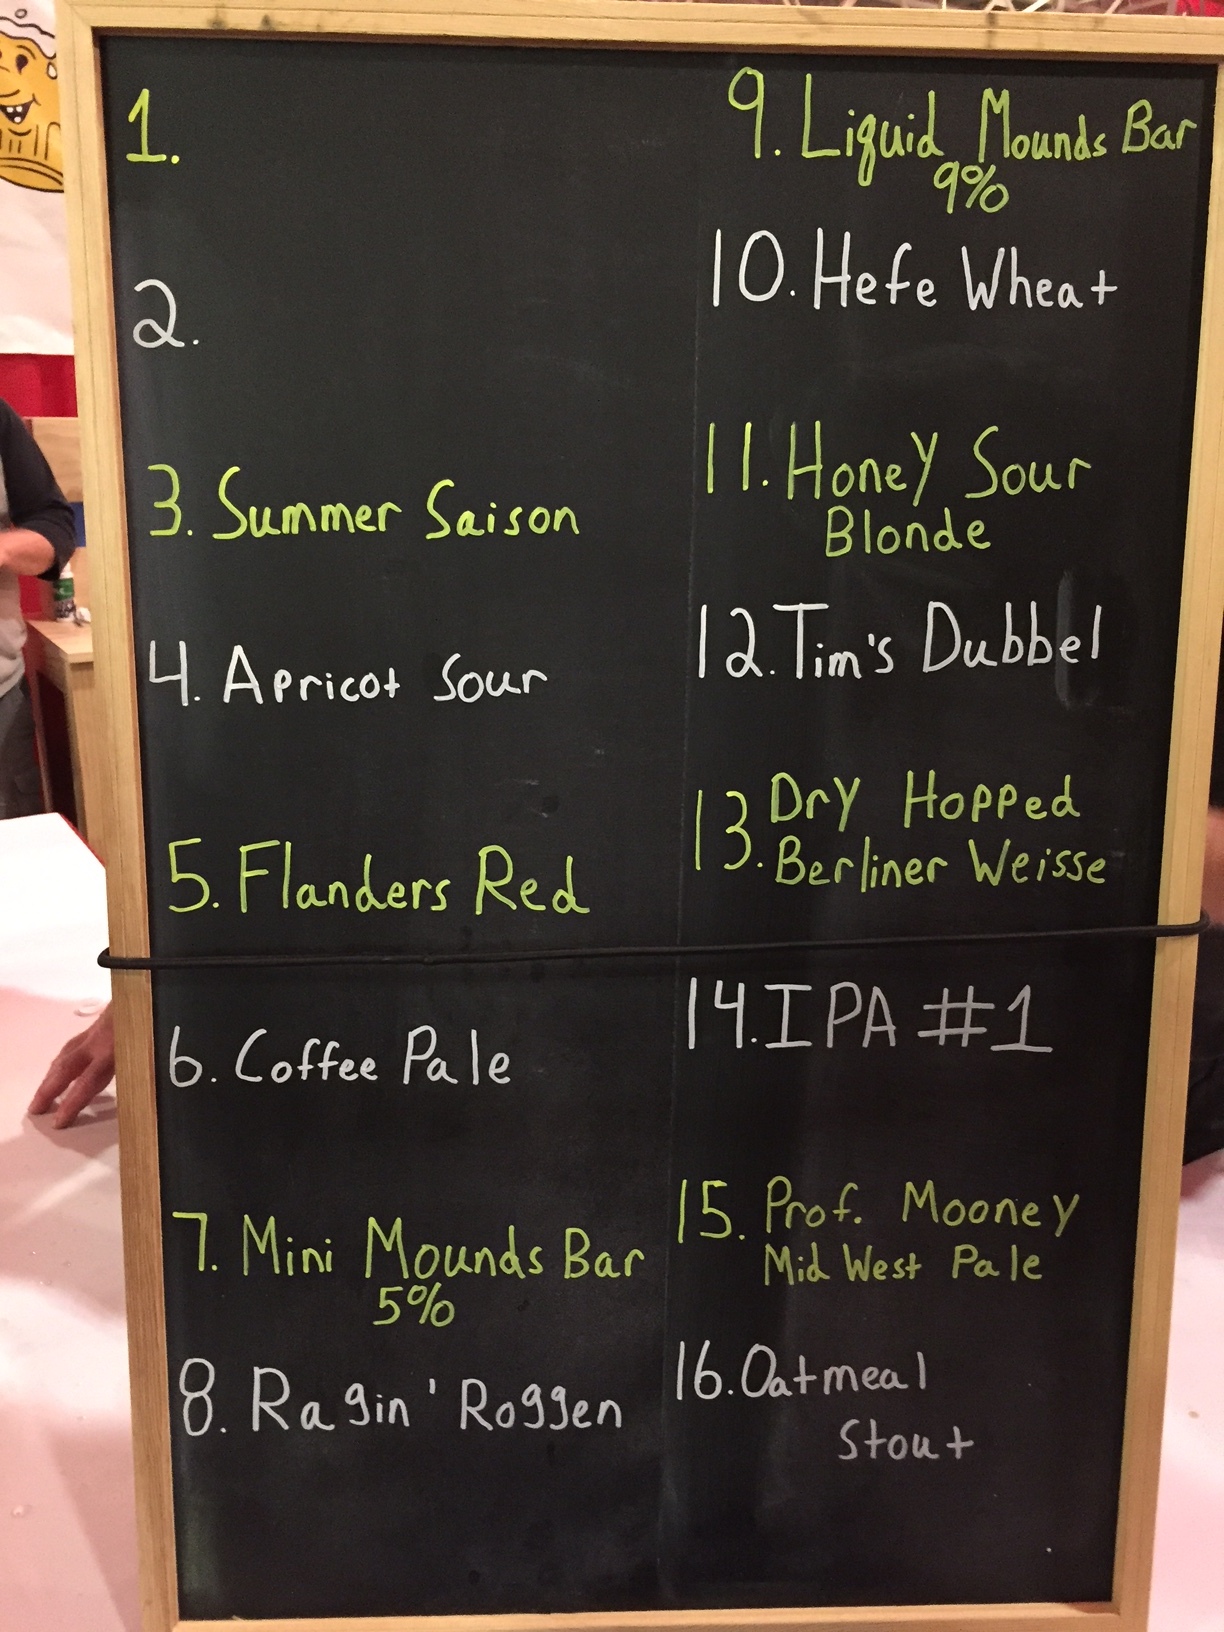 1.
2.
3. Summer Saison
4. Apricot Sour
5. Flanders Red
6. Coffee Pale
7. Mini Mounds Bar
5%
8. Ragin' Roggen
9. Liquid Mounds Bar
9%
10. Hefe Wheat
11. Honey Sour
Blonde
12. Tim's Dubbel
13. Dry Hopped
Berliner Weisse
14. IPA #1
15. Prof. Mooney
Mid West Pale
16. Oatmeal
Stout